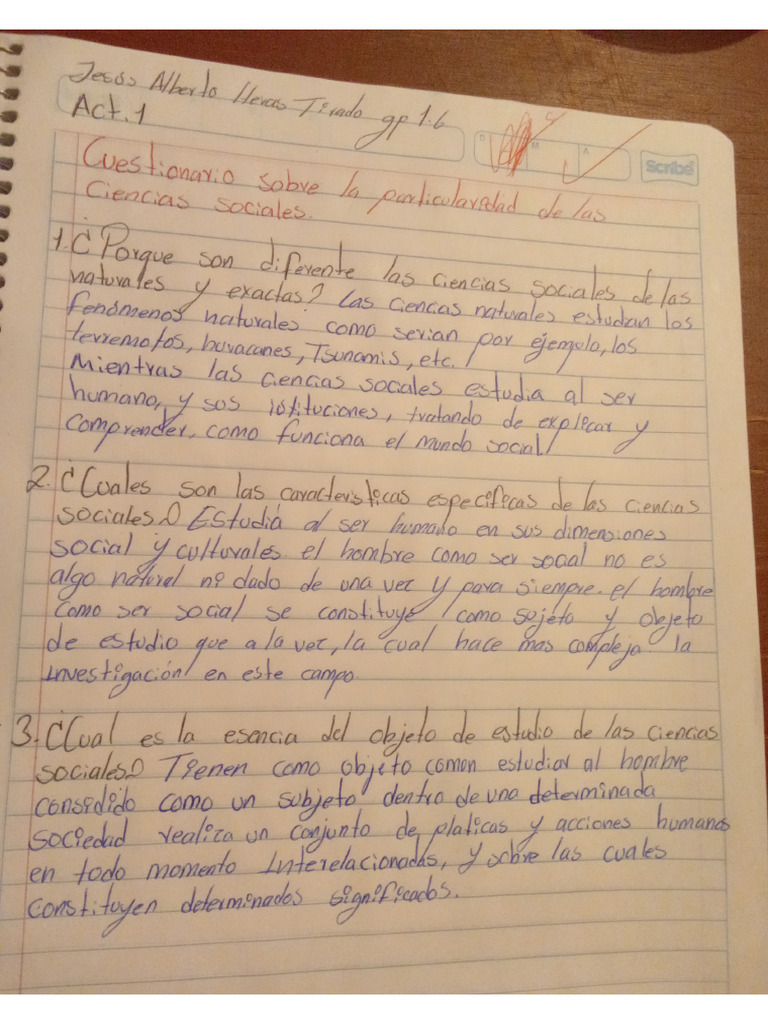 Jesús Alberto Heras Tirado gp 1.6
Act. 1
D M A
Scribe
Cuestionario sobre la particularidad de las
Ciencias sociales.
1. ¿Porque son diferente las ciencias sociales de las
naturales y exactas? Las ciencas naturales estudian los
fenómenos naturales como serian por ejemplo, los
terremotos, huracanes, Tsunamis, etc.
Mientras las ciencias sociales estudia al ser
humano, y sus istituciones, tratando de explicar y
comprender, como funciona el mundo social
2. ¿Cuales son las caracteristicas especificas de las ciencias
sociales? Estudia al ser humano en sus dimensiones
social y culturales. el hombre como ser social no es
algo natural ni dado de una vez y para siempre. el hombre
como ser social se constituye como sujeto y objeto
de estudio que a la vez, la cual hace mas compleja la
investigación en este campo
3. ¿Cual es la esencia del objeto de estudio de las ciencias
sociales? Tienen como objeto comon estudiar al hombre
considido como un subjeto dentro de una determinada
sociedad realiza un conjunto de platicas y acciones humanas
en todo momento Interelacionadas, y sobre las cuales
constituyen determinados significados.